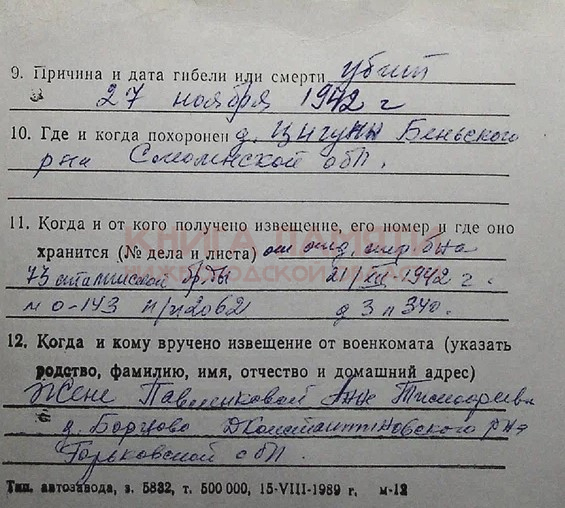 9. Причина и дата гибели или смерти убит
27 ноября 1942 г
10. Где и когда похоронен д. Цыгуны Беньского
р на Смоленской обл.
11. Когда и от кого получено извещение, его номер и где оно
хранится (№ дела и листа) от отд. стр б на
73 сталинской бр-ды 21/XII-1942 г.
м 0-143 п/п 2062 д 3 л 340.
КНИГА ПАМЯТИ
НИЖЕГОРОДСКОЙ ОБЛАСТИ
12. Когда и кому вручено извещение от военкомата (указать
родство, фамилию, имя, отчество и домашний адрес)
Жене Павленковой Анне
д. Борцово Д Константиновского р на
Горьковской обл.
Тип. автозавода, з. 5832, т. 500 000, 15-VIII-1989 г. м-12